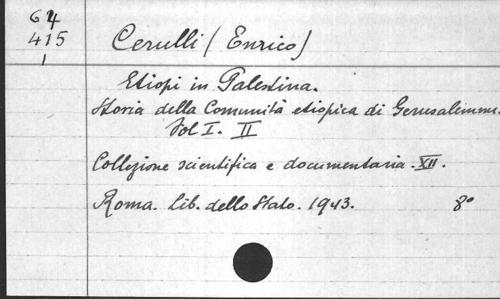 64
415
1
Cerulli (Enrico)
Etiopi in Palestina.
Storia della Comunità etiopica di Gerusalemme.
Vol I. II
Collezione scientifica e documentaria. XII.
Roma. Lib. dello Stato. 1943. 8°